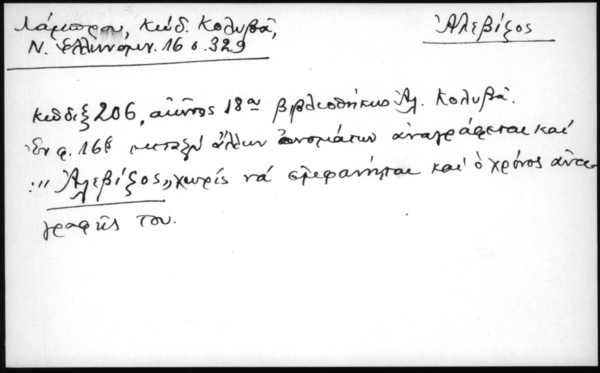 Λάμπρου, Κώδ. Κολυβᾶ,
Ν. Ἑλληνομν. 16 σ. 329
Ἀλεβίζος
Κῶδιξ 206, αἰῶνος 18ου βιβλιοθήκης Ἀλ. Κολυβᾶ.
Ἐν φ. 16β μεταξὺ ἄλλων ὀνομάτων ἀναγράφεται καὶ
:" Ἀλεβίζος„ χωρίς νά ἐμφανίηται καί ὁ χρόνος ἀντι-
γραφῆς του.